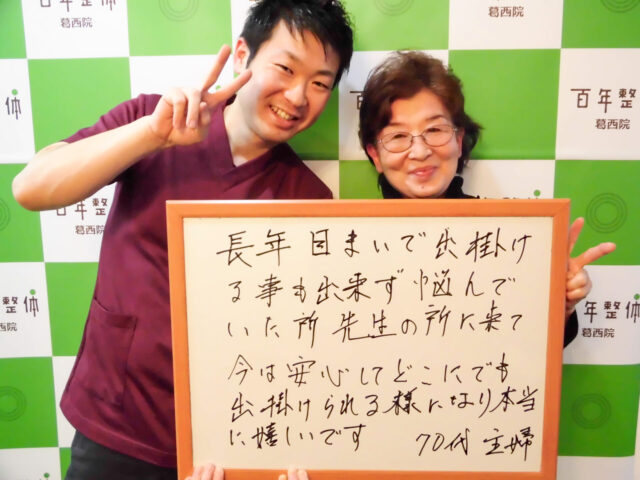 百年整体
葛西院
百年整
葛西院
体
百年整
葛西院
百年整体
葛西院
年整体
葛西院
長年目まいで出掛け
る事も出来ず悩んで
いた所先生の所に来て
今は安心してどこにでも
出掛けられる様になり本当
に嬉しいです 70代 主婦